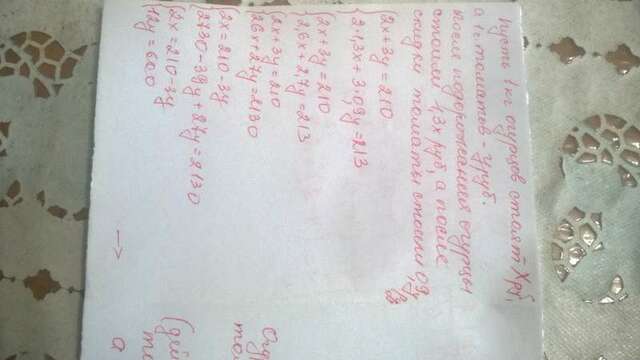 Пусть 1 кг огурцов стоят x руб,
а 1 кг томатов - y руб.
после подорожания огурцы
стоили 1,3x руб, а после
скидки томаты стоили 0,9y
{2x+3y=210
2·1,3x+3·0,9y=213
{2x+3y=210
2,6x+2,7y=213
{2x+3y=210
26x+27y=2130
{2x=210-3y
2730-39y+27y=2130
{2x=210-3y
12y=600
→